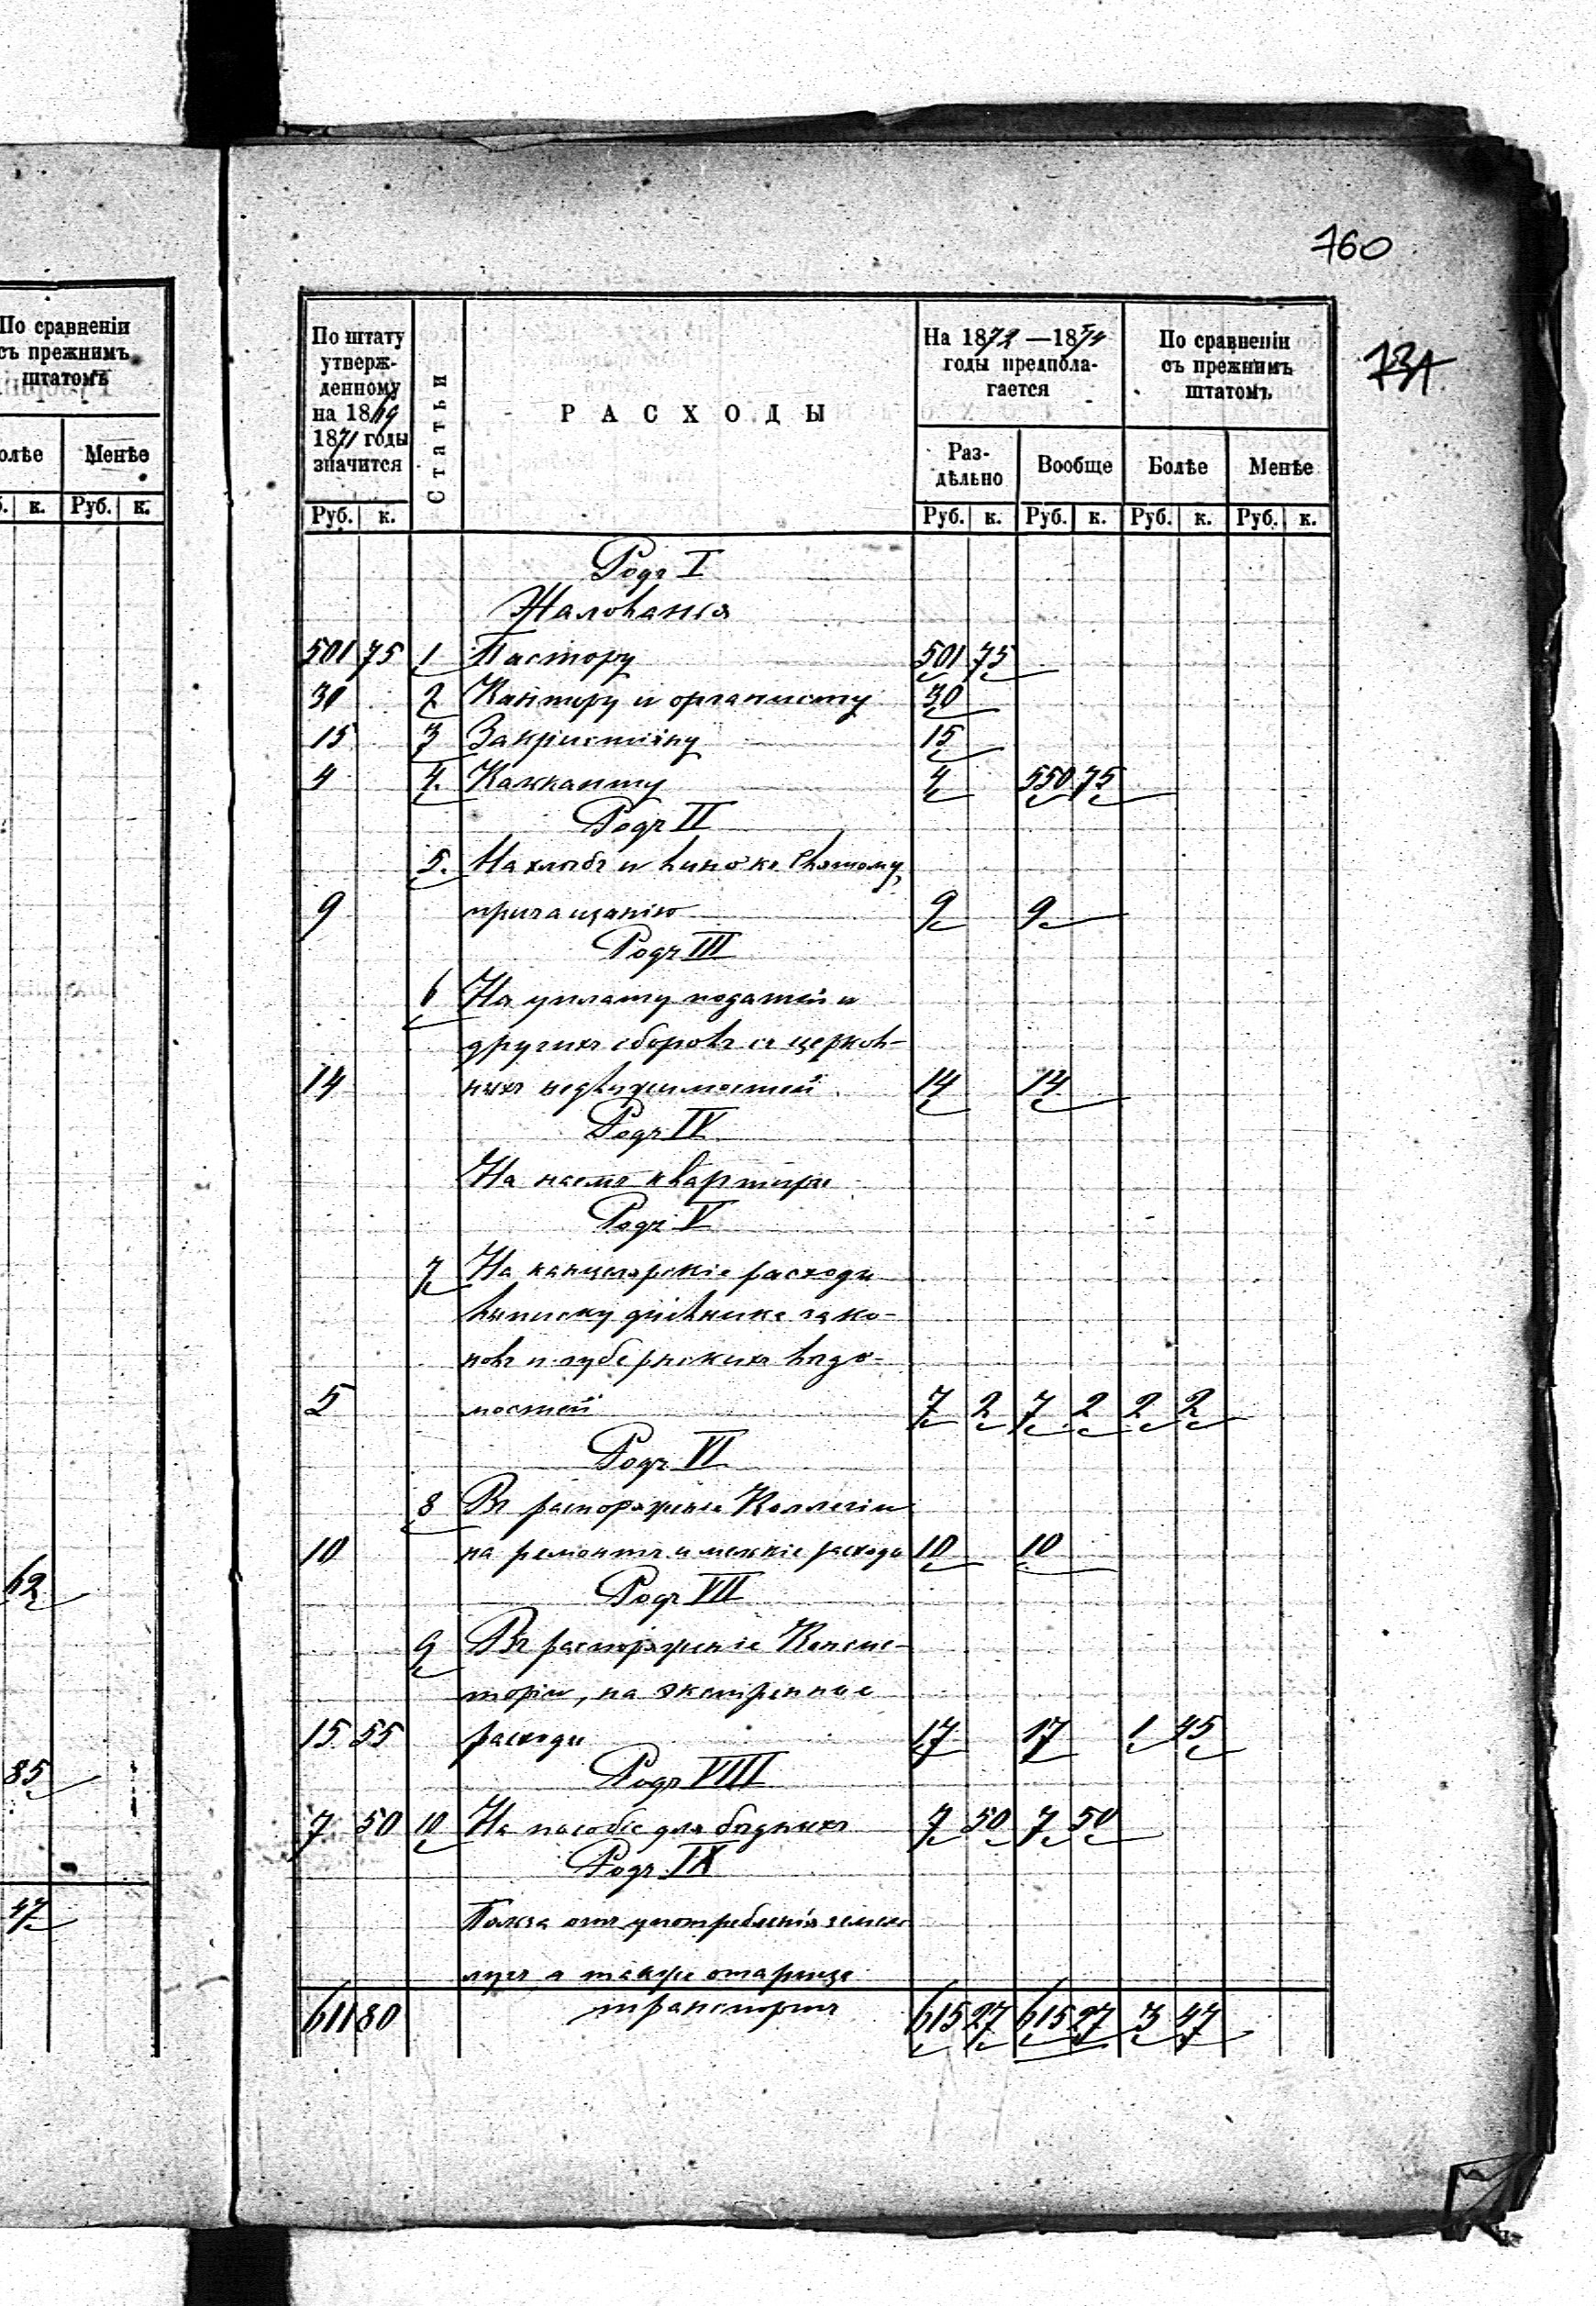 760
73А
По сравненіи
съ прежнимъ
штатомъ
олѣе Менѣе
к. Руб. к.
62
85
47
По штату
утверж-
денному
на 1869
1871 годы
значится
Статьи
РАСХОДЫ
На 1872—1874
годы предпола-
гается
По сравненіи
съ прежнимъ
штатомъ
Раз-
дѣльно
Вообще Болѣе Менѣе
Руб. к. Руб. к. Руб. к. Руб. к. Руб. к.
Родъ I
Жалованья
501 75 1 Пастору 501 75
30 2 Кантору и органисту 30
15 3 Закристіяну 15
4 4. Калканту 4 550 75
Родъ II
5. На хлѣбъ и вино къ Святому
9 причащанію 9 9
Родъ III
6 На уплату податей и
другихъ сборовъ съ церков-
14 ныхъ недвижимостей 14 14
Родъ IV
На наемъ квартиры
Родъ V
7 На канцелярскіе расходы
выписку дневника зако-
новъ и губернскихъ вѣдо-
5 мостей 7 2 7 2 2 2
Родъ VI
8 Въ распоряженіе Коллегіи
10 на ремонтъ и мелкіе расходы 10 10
Родъ VII
9 Въ распоряженіе Консис-
торіи, на экстренные
15 55 расходы 17 17 1 45
Родъ VIII
7 50 10 На пособіе для бѣдныхъ 7 50 7 50
Родъ IX
Польза отъ употребленія земель
лугъ а также
611 80 транспортъ 615 27 615 27 3 47